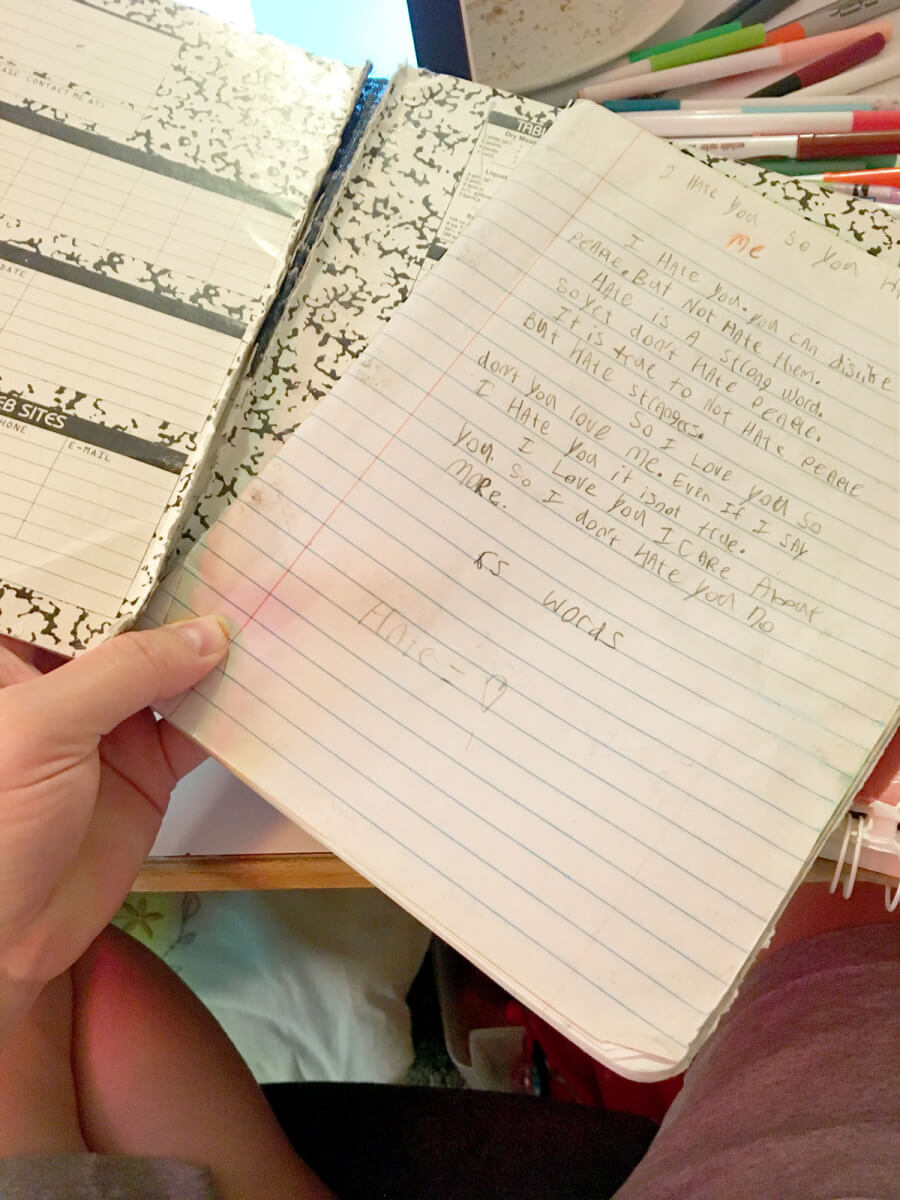 ASE CONTACT ME AT:
DATE
EB SITES
PHONE
E-MAIL
TAB
Dry Mea
I HAte you so you HA
Me
I HAte you. you can dislike
PeAPle. But Not HAte them.
HAte is A strong word.
So yet don't HAte PeAPle.
It is true to Not HAte PeAPle
But HAte strangers.
So I Love you so
don't you love me. Even If I SAy
I HAte you it isnot true.
I Love you I CAre About
you so I don't HAte you No
More.
65 words